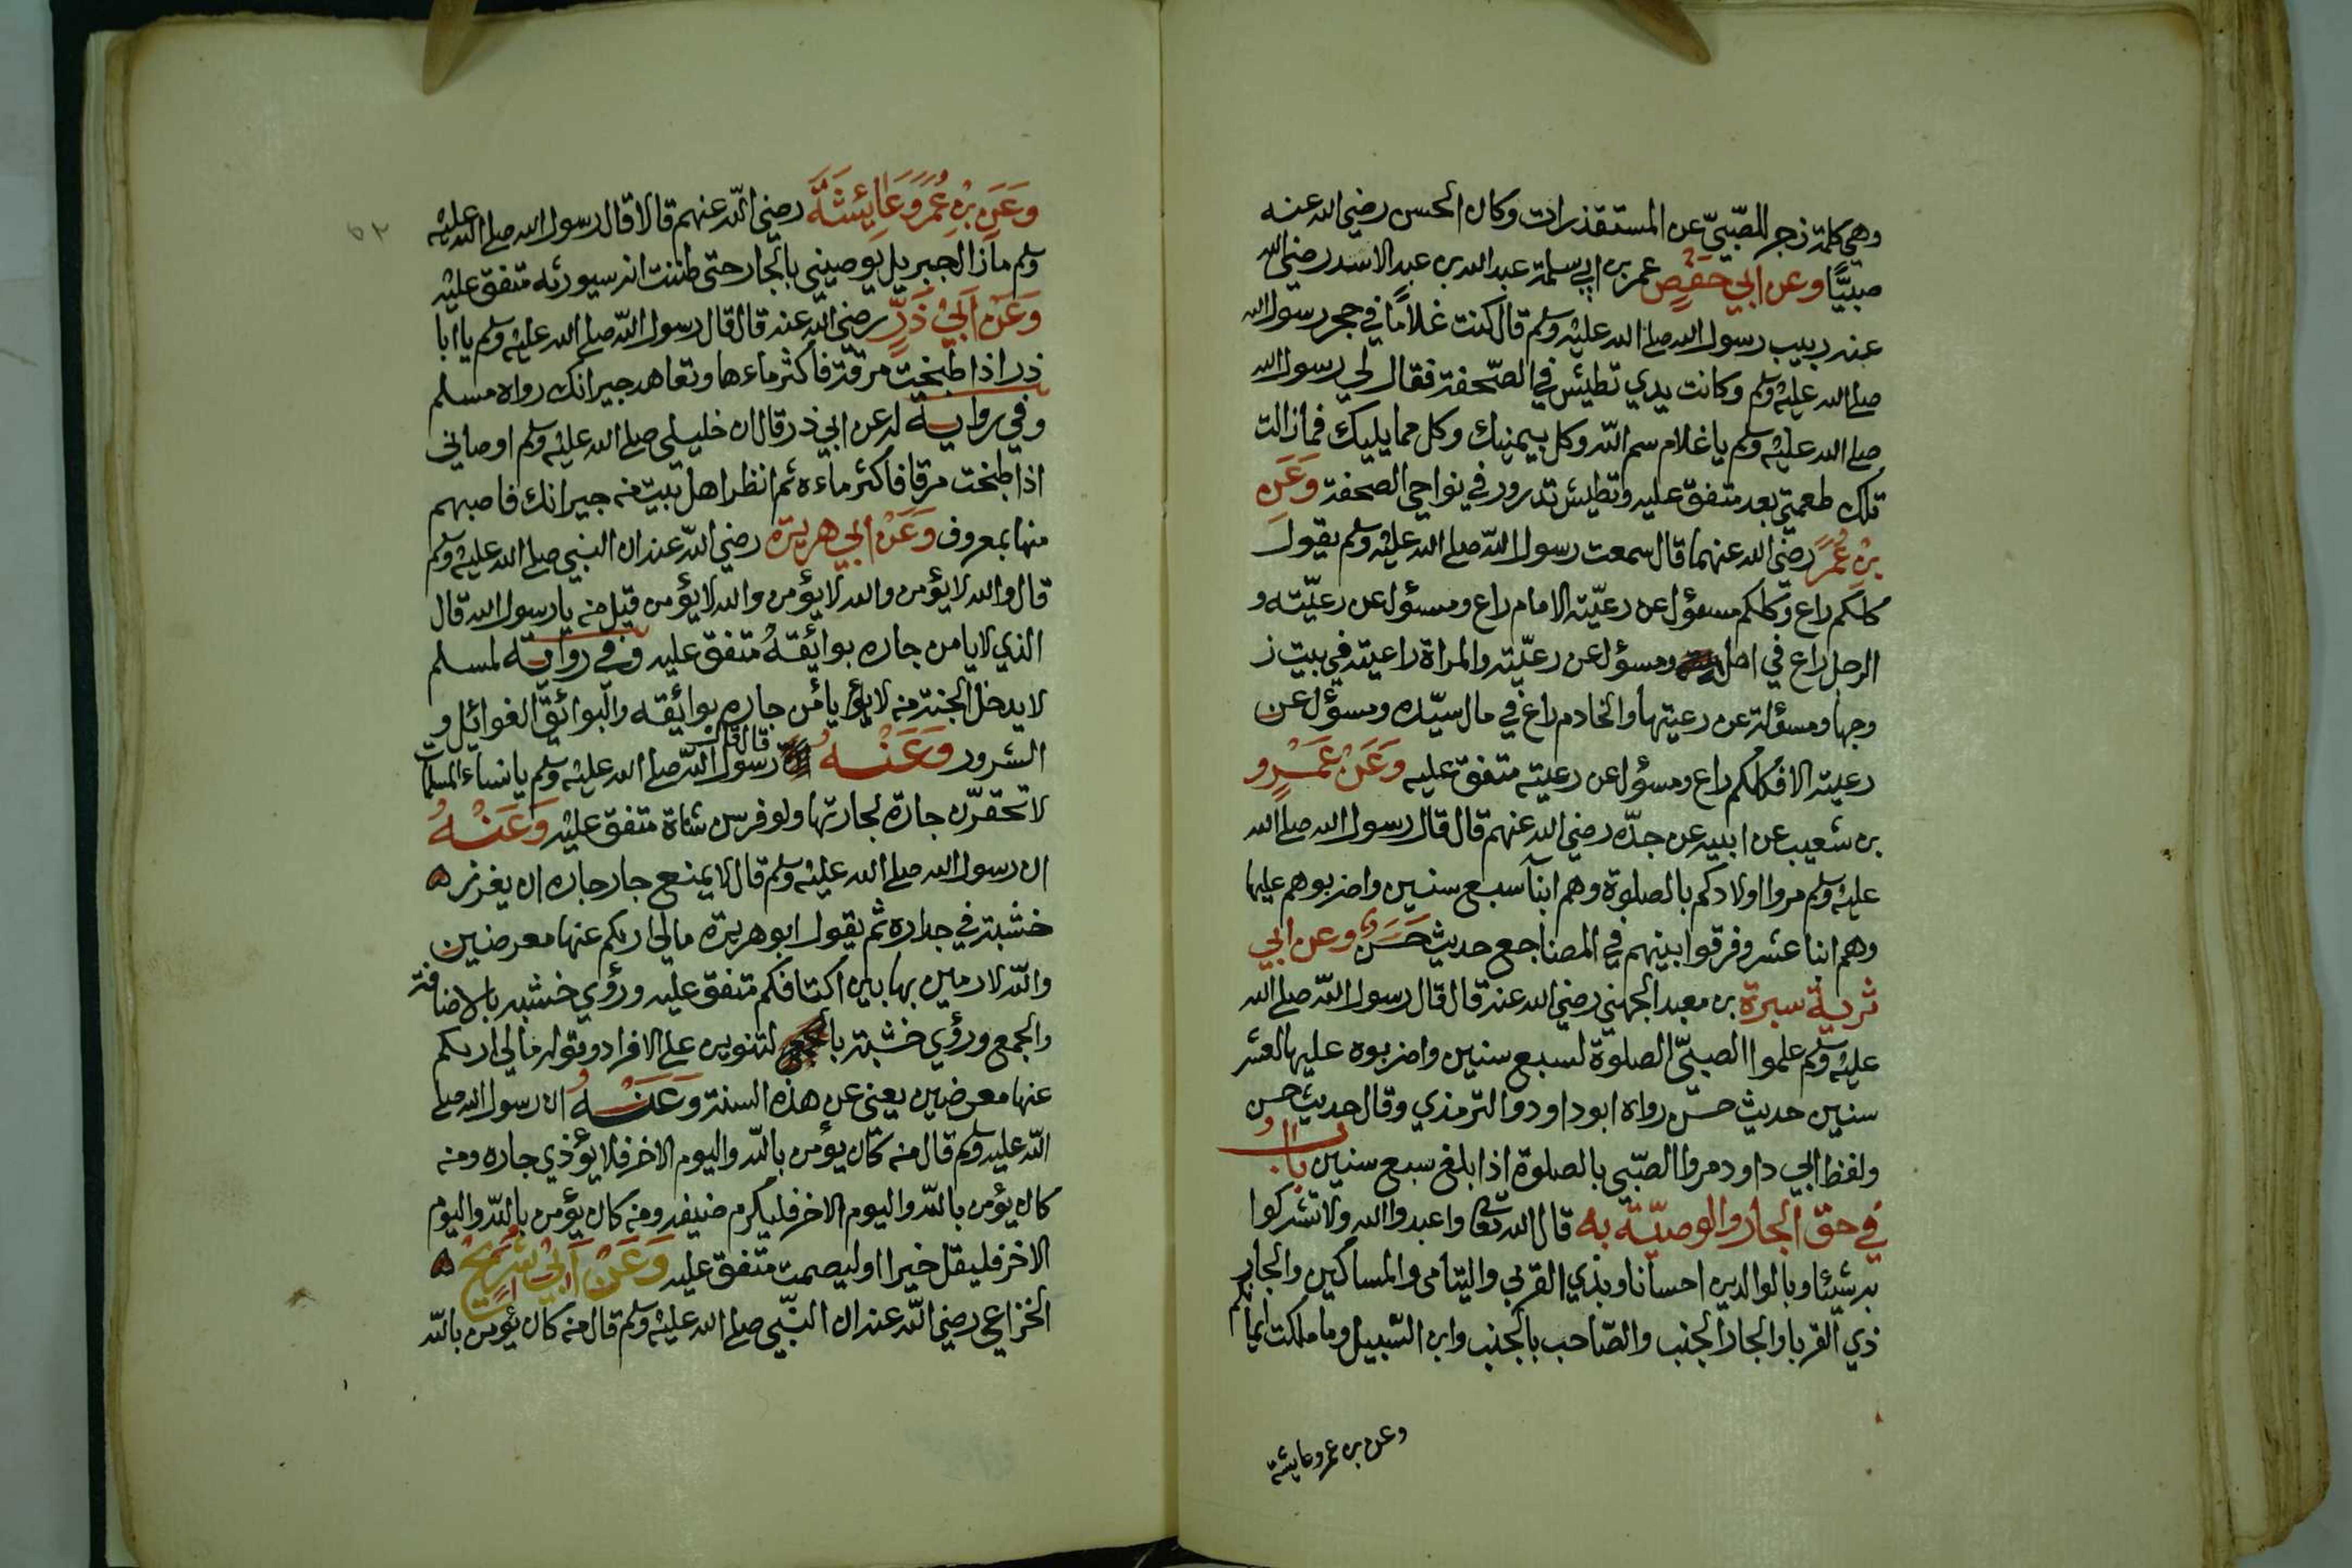 وهي كلمة زجر للصّبيّ عن المستقذرات وكان الحسن رضي الله عنه
صبيًّا وعن ابي حفصٍ عمر بن ابي سلمة عبد الله بن عبد الاسد رضي الله
عنه ربيب رسول الله صلى الله عليه وسلم قال كنت غلامًا في حجر رسول الله
صلى الله عليه وسلم وكانت يدي تطيش في الصّحفة فقال لي رسول الله
صلى الله عليه وسلم يا غلام سم الله وكل بيمينك وكل مما يليك فما زالت
تلك طعمتي بعد متفق عليه وتطيش تدور في نواحي الصحفة وَعَن
بن عُمَرَ رضي الله عنهما قال سمعت رسول الله صلى الله عليه وسلم يقول
كلكم راع وكلكم مسؤل عن رعيّته الامام راع ومسؤل عن رعيّته و
الرجل راع في اهله ومسؤل عن رعيّته والمراة راعيته في بيت ز
وجها ومسؤلة عن رعيتها والخادم راع في مال سيّده ومسؤل عن
رعيته الا فكلكم راع ومسؤل عن رعيته متفق عليه وَعَنْ عَمْرٍو
بن شعيب عن ابيه عن جدّه رضي الله عنهم قال قال رسول الله صلى الله
عليه وسلم مروا اولادكم بالصلوة وهم ابنآ سبع سنين واضربوهم عليها
وهم ابنا عشر وفرقوا بينهم في المضاجع حديث حَسَن وعن ابي
ثرية سبرة بن معبد الجهني رضي الله عنه قال قال رسول الله صلى الله
عليه وسلم علموا الصبيّ الصلوة لسبع سنين واضربوه عليها لعشر
سنين حديث حسنٌ رواه ابو داود والترمذي وقال حديث حسن
ولفظ ابي داود مروا الصّبي بالصلوة اذا بلغ سبع سنين بابٌ
في حقّ الجار والوصيّة به قال الله تعالى واعبدوا الله ولا تشركوا
به شيئا وبالوالدين احسانا وبذي القربي واليتامى والمساكين والجار
ذي القربا والجار الجنب والصّاحب بالجنب وابن السّبيل وما ملكت ايمانكم
وعن بن عمر وعايشة
٥٢
وَعَن بْنِ عُمَرَ وَعَايِشَةَ رضي الله عنهم قالا قال رسول الله صلى الله عليه
وسلم مازال جبريل يوصيني بالجار حتى ظننت انه سيورثه متفق عليه
وَعَنْ اَبِيْ ذَرٍّ رضي الله عنه قال قال رسول الله صلى الله عليه وسلم يا ابا
ذر اذا طبخت مرقة فاكثر ماءها وتعاهد جيرانك رواه مسلم
وفي رواية له عن ابي ذر قال ان خليلي صلى الله عليه وسلم اوصاني
اذا طبخت مرقا فاكثر ماءه ثم انظر اهل بيت من جيرانك فاصبهم
منها بمعروف وَعَنْ ابي هريرة رضي الله عنه ان النبي صلى الله عليه وسلم
قال والله لا يؤمن والله لا يؤمن والله لا يؤمن قيل من يا رسول الله قال
الذي لا يامن جاره بوائقهُ متفق عليه وفي رواية لمسلم
لا يدخل الجنة من لا يؤ يأمن جاره بوائقه والبوائق الغوائل و
الشرور وَعَنْهُ قال قال رسول الله صلى الله عليه وسلم يا نساء المسلمات
لا تحقرّن جارة لجارتها ولو فرس شاة متفق عليه وَعَنْهُ
ان رسول الله صلى الله عليه وسلم قال لا يمنع جار جاره ان يغرز
خشبة في جداره ثم يقول ابو هريرة مالي اريكم عنها معرضين
والله لارمين بها بين اكتافكم متفق عليه ورؤي خشبه بالاضافة
والجمع ورؤي خشبة بالتنوين على الافراد وقوله مالي اريكم
عنها معرضين يعنى عن هذه السنة وَعَنْهُ ان رسول الله صلى
الله عليه وسلم قال من كان يؤمن بالله واليوم الاخر فلا يؤذي جاره ومن
كان يؤمن بالله واليوم الاخر فليكرم ضيفه ومن كان يؤمن بالله واليوم
الاخر فليقل خيرا او ليصمت متفق عليه وَعَنْ اَبِيْ شُرَيْحٍ
الخزاعي رضي الله عنه ان النّبي صلى الله عليه وسلم قال من كان يؤمن بالله